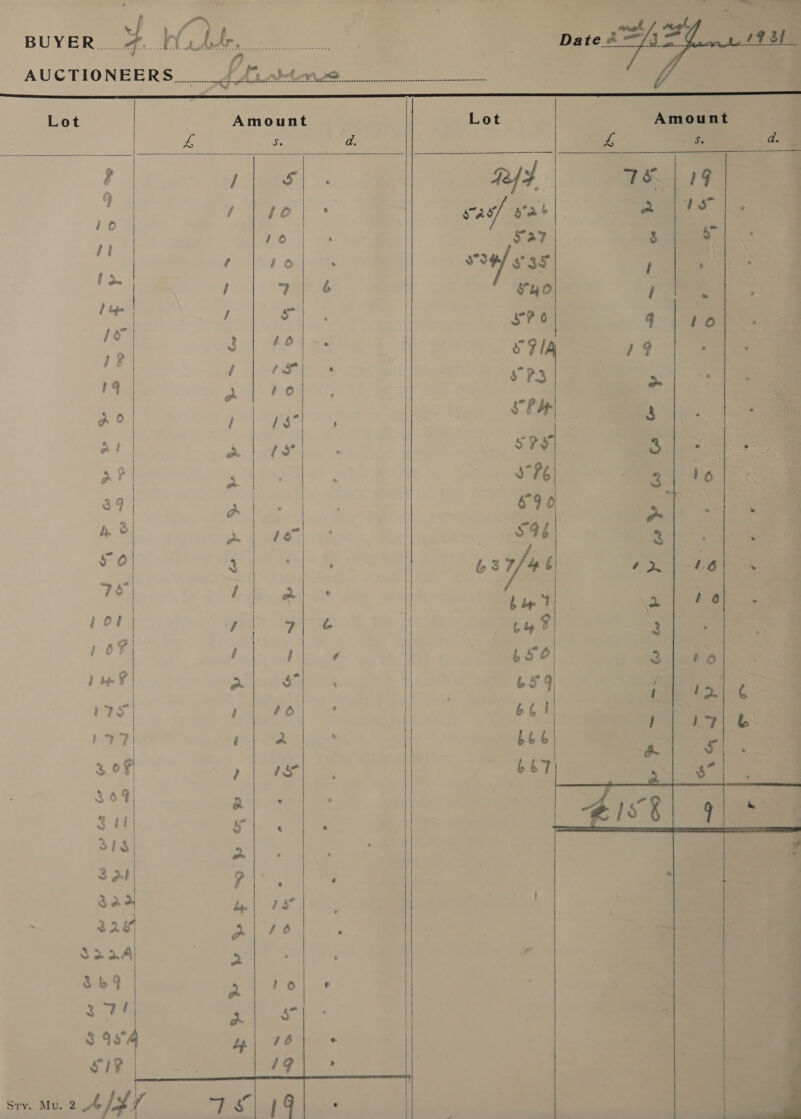 BUYER
Date 1931
AUCTIONEERS
Lot Amount Lot Amount
£ s. d. £ s. d.
8 1 5 .
9 1 10 .
10 10 .
11 1 10 .
12 1 7 6
14 1 5 .
15 3 10 .
18 1 15 .
19 2 10 .
20 1 15 .
21 2 15 .
28 2 . .
39 2 . .
43 2 15 .
50 3 . .
75 1 2 .
101 1 7 6
108 1 1 .
148 2 5 .
175 1 10 .
177 1 2 .
308 1 15 .
309 2 . .
311 5 . .
313 2 . .
321 8 . .
322 4 15 .
325 2 10 .
322A 2 . .
369 2 10 .
371 2 5 .
395A 4 16 .
518 19 .
Sty. Mu. 2 75 19 .
75 19
525/526 2 15 .
527 3 5 .
534/535 1 . .
540 1 . .
580 9 10 .
591A 19 . .
583 2 . .
584 3 . .
585 3 . .
586 3 10 .
590 2 . .
596 3 . .
637/46 12 16 .
647 2 10 .
648 3 . .
650 3 10 .
659 1 12 6
661 1 17 6
666 2 5 .
667 2 5 .
£158 9 .